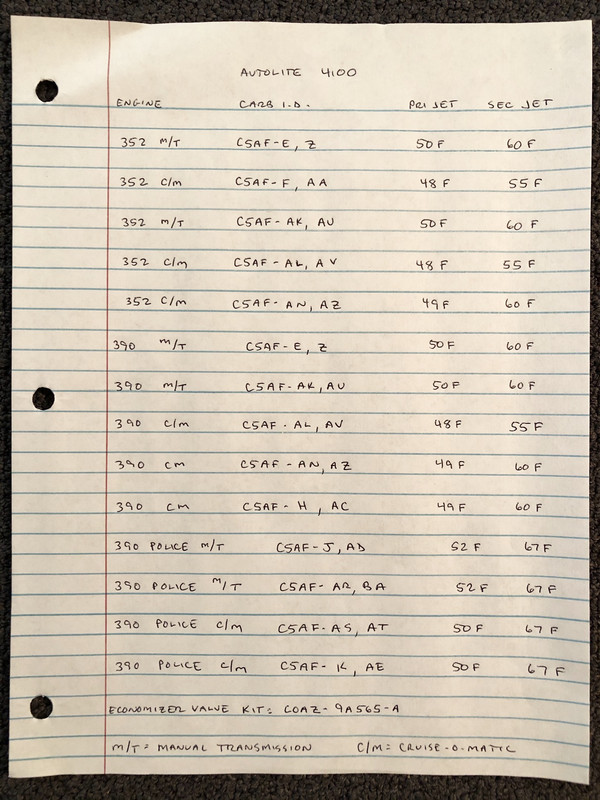 AUTOLITE 4100
ENGINE CARB I.D. PRI JET SEC JET
352 M/T C5AF-E, Z 50 F 60 F
352 C/M C5AF-F, AA 48 F 55 F
352 M/T C5AF-AK, AU 50 F 60 F
352 C/M C5AF-AL, AV 48 F 55 F
352 C/M C5AF-AN, AZ 49 F 60 F
390 M/T C5AF-E, Z 50 F 60 F
390 M/T C5AF-AK, AU 50 F 60 F
390 C/M C5AF-AL, AV 48 F 55 F
390 CM C5AF-AN, AZ 49 F 60 F
390 CM C5AF-H, AC 49 F 60 F
390 POLICE M/T C5AF-J, AD 52 F 67 F
390 POLICE M/T C5AF-AR, BA 52 F 67 F
390 POLICE C/M C5AF-AS, AT 50 F 67 F
390 POLICE C/M C5AF-K, AE 50 F 67 F
ECONOMIZER VALVE KIT: COAZ-9A565-A
M/T = MANUAL TRANSMISSION C/M = CRUISE-O-MATIC